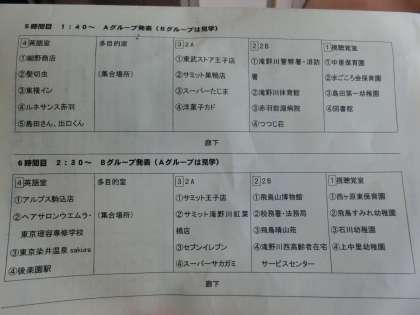 5時間目 1:40～ Aグループ発表（Bグループは見学）
4 英語室
①細野商店
②髪切虫
③東横イン
④ルネサンス赤羽
⑤島田さん、出口くん
多目的室
（集合場所）
3 2A
①東武ストア王子店
②サミット巣鴨店
③スーパーたじま
④洋菓子カド
2 2B
①滝野川警察署・消防
署
②滝野川体育館
③赤羽岩淵病院
④つつじ荘
1 視聴覚室
①中里保育園
②水ごころ会保育園
③島田第一幼稚園
④図書館
廊下
6時間目 2:30～ Bグループ発表（Aグループは見学）
4 英語室
①アルプス駒込店
②ヘアサロンウエムラ・
東京理容専修学校
③東京染井温泉 sakura
④後楽園駅
多目的室
（集合場所）
3 2A
①サミット王子店
②サミット滝野川紅葉
橋店
③セブンイレブン
④スーパーサカガミ
2 2B
①飛鳥山博物館
②税務署・法務局
③飛鳥晴山苑
④滝野川西高齢者在宅
サービスセンター
1 視聴覚室
①西ヶ原東保育園
②飛鳥すみれ幼稚園
③石川幼稚園
④上中里幼稚園
廊下